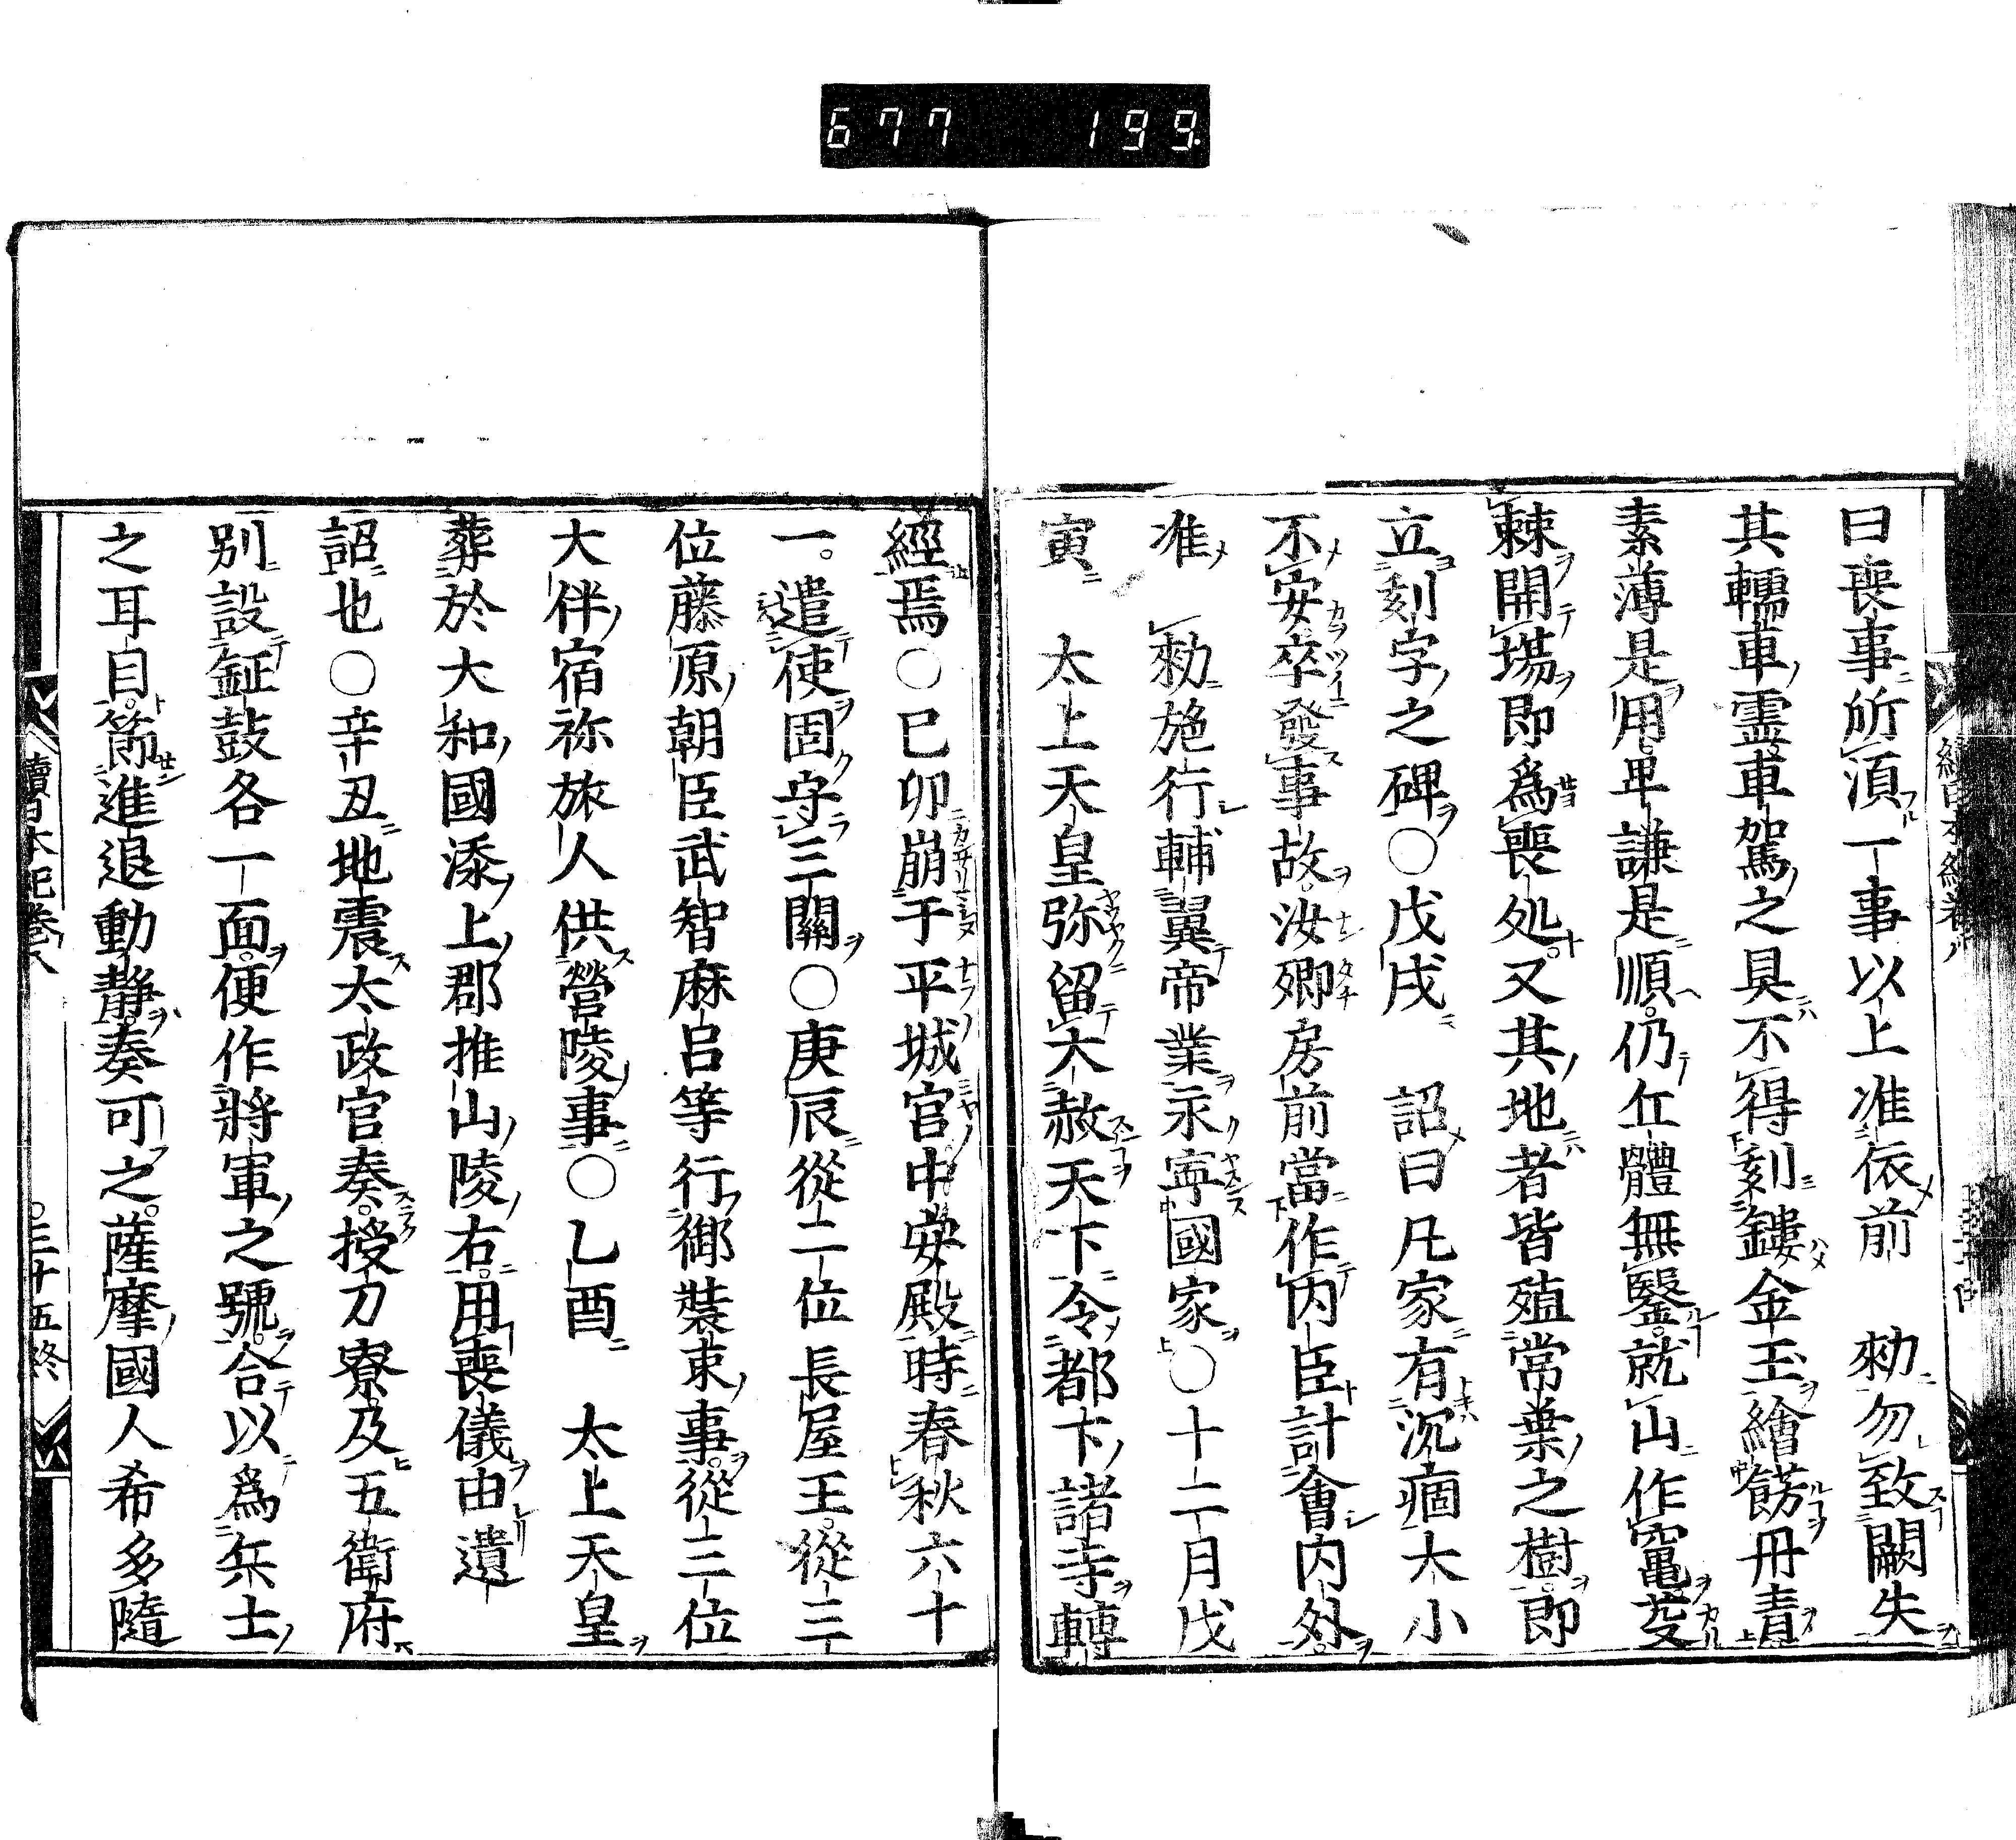 677 199.
曰喪事所湏一事以上准依前　勑勿致闕失
其轜車靈車駕之具不得刻鏤金玉繪餝丹青
素薄是用卑謙是順仍丘體無鑿就山作竃芟
棘開場即爲喪処又其地者皆殖常葉之樹即
立刻字之碑○戊戌　詔曰凡家有沉痼大小
不安卒發事故汝卿房前當作内臣計會内外
准　勑施行輔翼帝業永寧國家○十二月戊
寅　太上天皇弥留大赦天下令都下諸寺轉
經焉○巳卯崩于平城宮中安殿時春秋六十
一遣使固守三關○庚辰從二位長屋王從三
位藤原朝臣武智麻呂等行御裝束事從三位
大伴宿祢旅人供營陵事○乙酉　太上天皇
葬於大和國添上郡推山陵右用喪儀由遺
詔也○辛丑地震太政官奏授刀寮及五衛府
別設鉦鼓各一面便作將軍之號合以爲兵士
之耳目節進退動靜奏可之薩摩國人希多隨
續日本紀巻八
三十五終